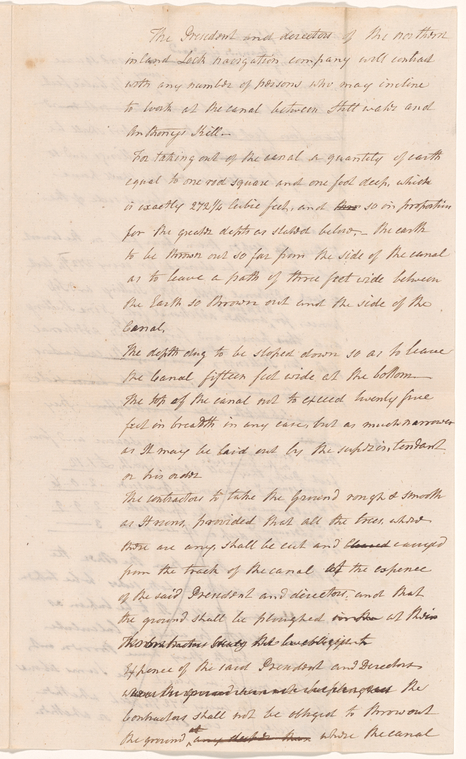 The President and directors of the northern
inland Lock navigation company will contract
with any number of persons who may incline
to work at the canal between Still water and
Anthonys Kill.—
For taking out of the canal a quantity of earth
equal to one rod square and one foot deep, which
is exactly 272¼ Cubic feet, and so in proportion
for the greater depth as stated below,— the earth
to be thrown out so far from the side of the canal
as to leave a path of three feet wide between
the Earth so thrown out and the side of the
Canal,
The depth dug to be sloped down so as to leave
the Canal fifteen feet wide at the bottom—
The top of the canal not to exceed twenty five
feet in breadth in any case, but as much narrower
as It may be laid out by the superintendant
or his order
The contractors to take the ground rough & smooth
as It runs, provided that all the trees, where
there are any shall be cut and cleared carried
from the track of the canal at the expence
of the said President and directors, and that
the ground shall be ploughed in the at their
The Contractors being
Expence of the said President and Directors
the
Contractors shall not be obliged to throw out
the ground, at any depth than where the canal